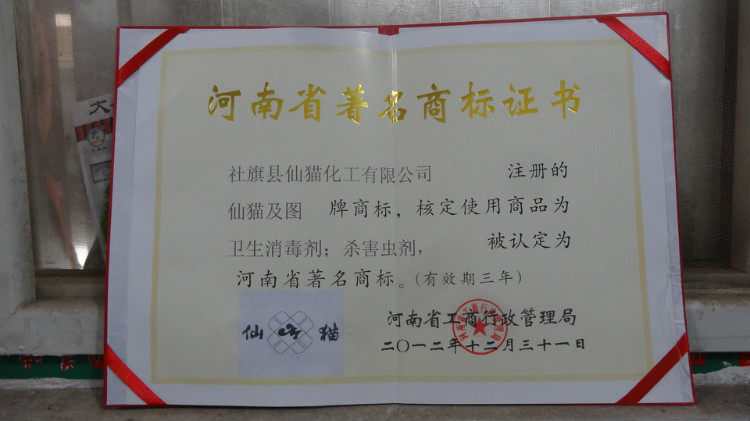 河南省著名商标证书
社旗县仙猫化工有限公司 注册的
仙猫及图 牌商标，核定使用商品为
卫生消毒剂；杀害虫剂， 被认定为
河南省著名商标。(有效期三年)
仙 猫
河南省工商行政管理局
二〇一二年十二月三十一日
大